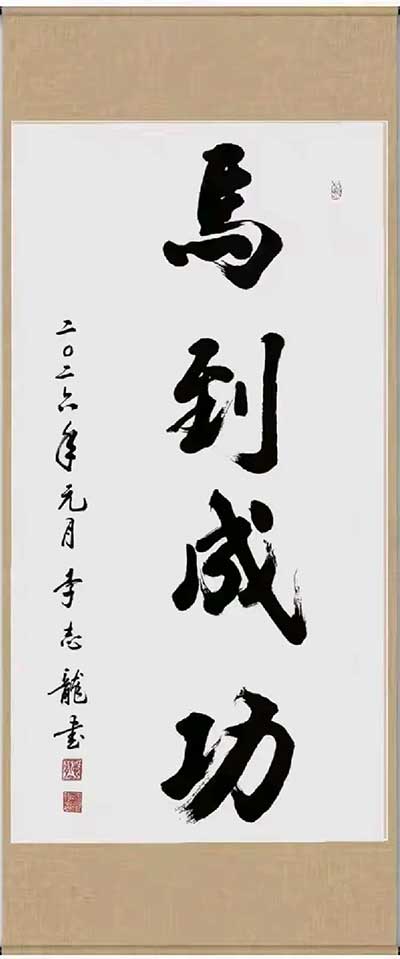 馬到成功
二〇二六年元月李志龍書